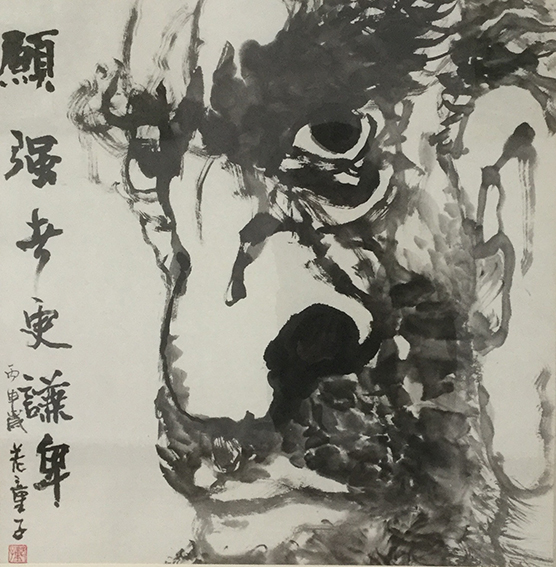 願强者更謙卑
丙申歲 童子